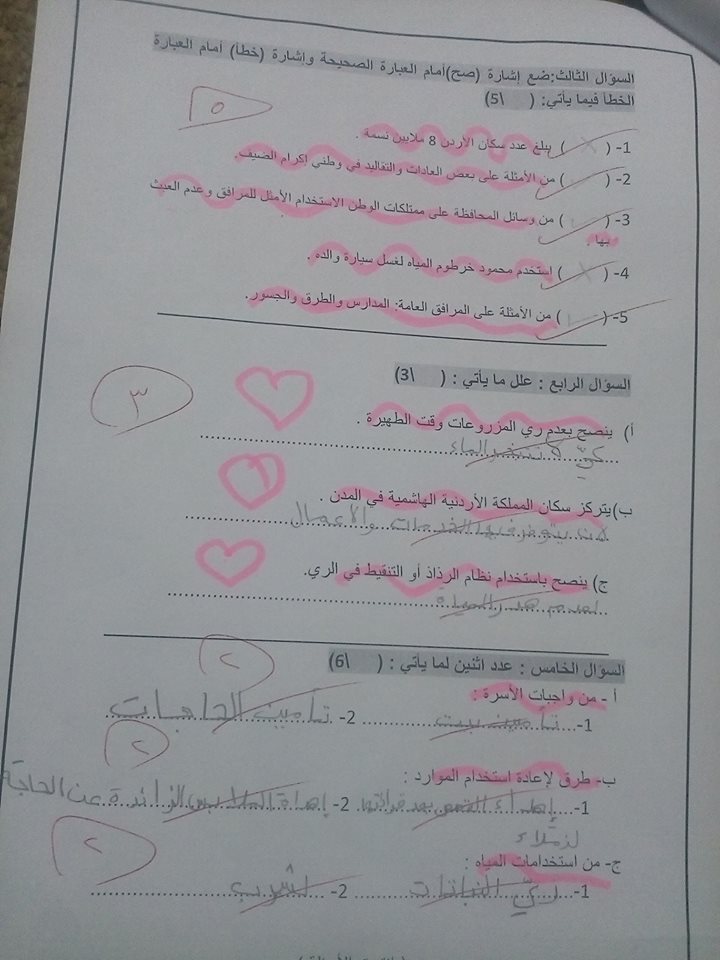 السؤال الثالث:ضع إشارة (صح)أمام العبارة الصحيحة وإشارة (خطأ) أمام العبارة
الخطأ فيما يأتي: ( \5)
٥
1- ( X ) يبلغ عدد سكان الأردن 8 ملايين نسمة .
2- ( ) من الأمثلة على بعض العادات والتقاليد في وطني إكرام الضيف.
3- ( ) من وسائل المحافظة على ممتلكات الوطن الاستخدام الأمثل للمرافق وعدم العبث
بها .
4- ( X ) استخدم محمود خرطوم المياه لغسل سيارة والده .
5- ( ) من الأمثلة على المرافق العامة: المدارس والطرق والجسور.
السؤال الرابع : علل ما يأتي : ( \3)
٣
أ) ينصح بعدم ري المزروعات وقت الظهيرة .
الماء
ب)يتركز سكان المملكة الأردنية الهاشمية في المدن .
الخدمات والاعمال
ج) ينصح باستخدام نظام الرذاذ أو التنقيط في الري.
لعدم هدر المياة
السؤال الخامس : عدد اثنين لما يأتي : ( \6)
٢
أ - من واجبات الأسرة :
1- تأمين بيت 2- تأمين الحاجات
٢
ب- طرق لإعادة استخدام الموارد :
1- إهداء القصص بعد قرائتها 2- إهداة الملابس الزائدة عن الحاجة
لزملاء
٢
ج- من استخدامات المياه :
1- ريّ النباتات 2- لشرب